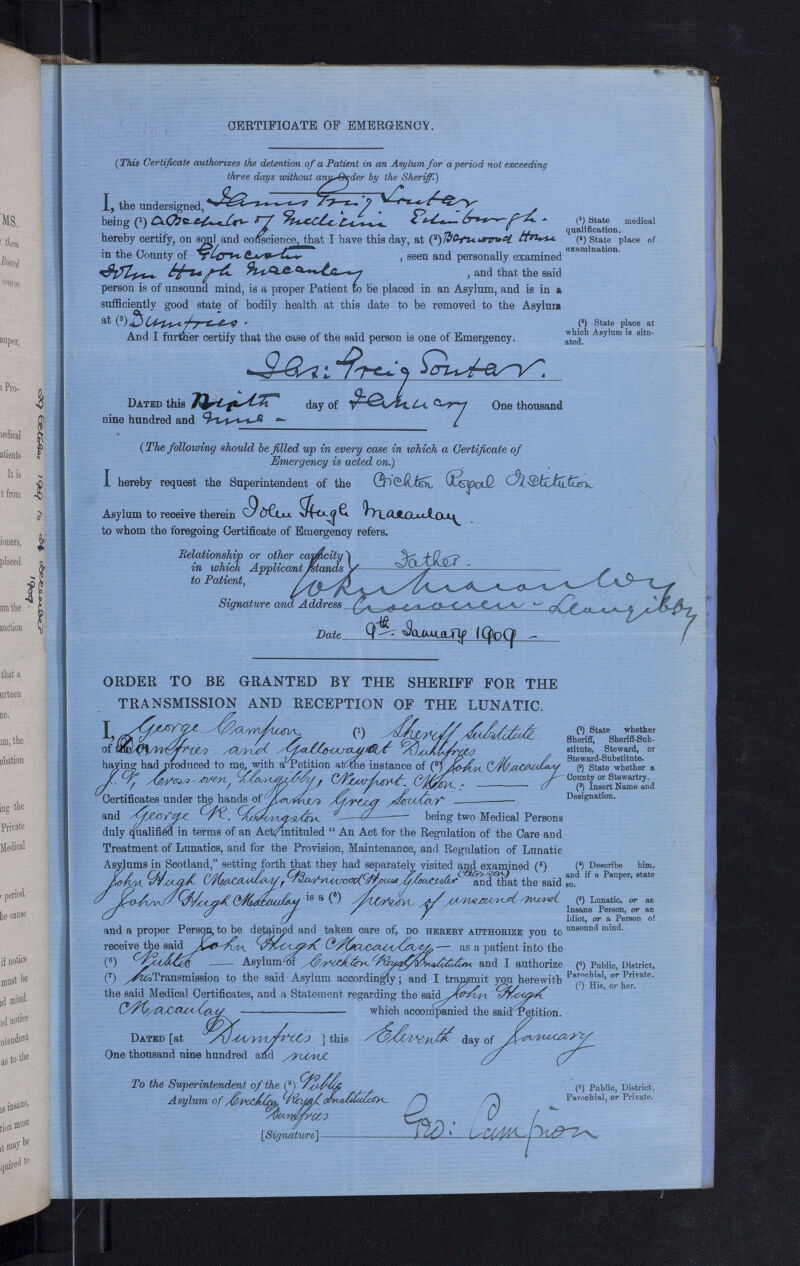 CERTIFICATE OF EMERGENCY.
(This Certificate authorizes the detention of a Patient in an Asylum for a period not exceeding
three days without any Order by the Sheriff.)
I, the undersigned, James Greig Soutar
being (¹) a Bachelor of Medicine Edinburgh.
hereby certify, on soul and conscience, that I have this day, at (²) Barnwood House
in the County of Gloucester, seen and personally examined
John Hugh Macaulay, and that the said
person is of unsound mind, is a proper Patient to be placed in an Asylum, and is in a
sufficiently good state of bodily health at this date to be removed to the Asylum
at (³) Dumfries.
And I further certify that the case of the said person is one of Emergency.
Jas: Greig Soutar.
DATED this Ninth day of January One thousand
nine hundred and nine -
(¹) State medical
qualification.
(²) State place of
examination.
(³) State place at
which Asylum is situ-
ated.
(The following should be filled up in every case in which a Certificate of
Emergency is acted on.)
I hereby request the Superintendent of the Crichton Royal Institution
Asylum to receive therein John Hugh Macaulay.
to whom the foregoing Certificate of Emergency refers.
Relationship or other capacity
in which Applicant stands
to Patient,
Father.
John Macaulay
Signature and Address Llangibby
Date 9th January 1909 -
ORDER TO BE GRANTED BY THE SHERIFF FOR THE
TRANSMISSION AND RECEPTION OF THE LUNATIC.
I, George Campion (¹) Sheriff Substitute
of Dumfries and Galloway at Dumfries
having had produced to me, with a Petition at the instance of (³) John Macaulay
J. P., Cross-owen, Llangibby, Newport. Mon:
Certificates under the hands of James Greig Soutar
and George R. Livingston being two Medical Persons
duly qualified in terms of an Act, intituled "An Act for the Regulation of the Care and
Treatment of Lunatics, and for the Provision, Maintenance, and Regulation of Lunatic
Asylums in Scotland," setting forth that they had separately visited and examined (⁴)
John Hugh Macaulay, Barnwood House, Gloucester and that the said
John Hugh Macaulay is a (⁵) person of unsound mind
and a proper Person to be detained and taken care of, DO HEREBY AUTHORIZE you to
receive the said John Hugh Macaulay - as a patient into the
(⁶) Public - Asylum of Crichton Royal Institution and I authorize
(⁷) his Transmission to the said Asylum accordingly; and I transmit you herewith
the said Medical Certificates, and a Statement regarding the said John Hugh
Macaulay which accompanied the said Petition.
DATED [at Dumfries ] this Eleventh day of January
One thousand nine hundred and nine
To the Superintendent of the (⁸) Public
Asylum of Crichton Royal Institution
Dumfries
[Signature] Geo: Campion
(¹) State whether
Sheriff, Sheriff-Sub-
stitute, Steward, or
Steward-Substitute.
(²) State whether a
County or Stewartry.
(³) Insert Name and
Designation.
(⁴) Describe him,
and if a Pauper, state
so.
(⁵) Lunatic, or an
Insane Person, or an
Idiot, or a Person of
unsound mind.
(⁶) Public, District,
Parochial, or Private.
(⁷) His, or her.
(⁸) Public, District,
Parochial, or Private.